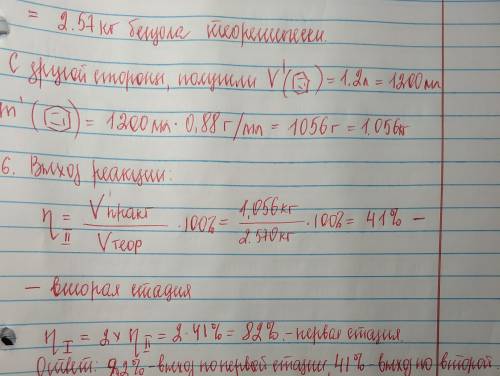 = 2.57 кг бензола теоретически.
С другой стороны, получили V'(⌬) = 1.2л = 1200 мл
m'(⌬) = 1200 мл · 0,88 г/мл = 1056 г = 1,056 кг
6. Выход реакции:
η II = V'практ / Vтеор · 100% = 1,056 кг / 2.570 кг · 100% = 41% –
– вторая стадия
η I = 2 × η II = 2 · 41% = 82% – первая стадия.
Ответ: 82% – выход по первой стадии, 41% – выход по второй